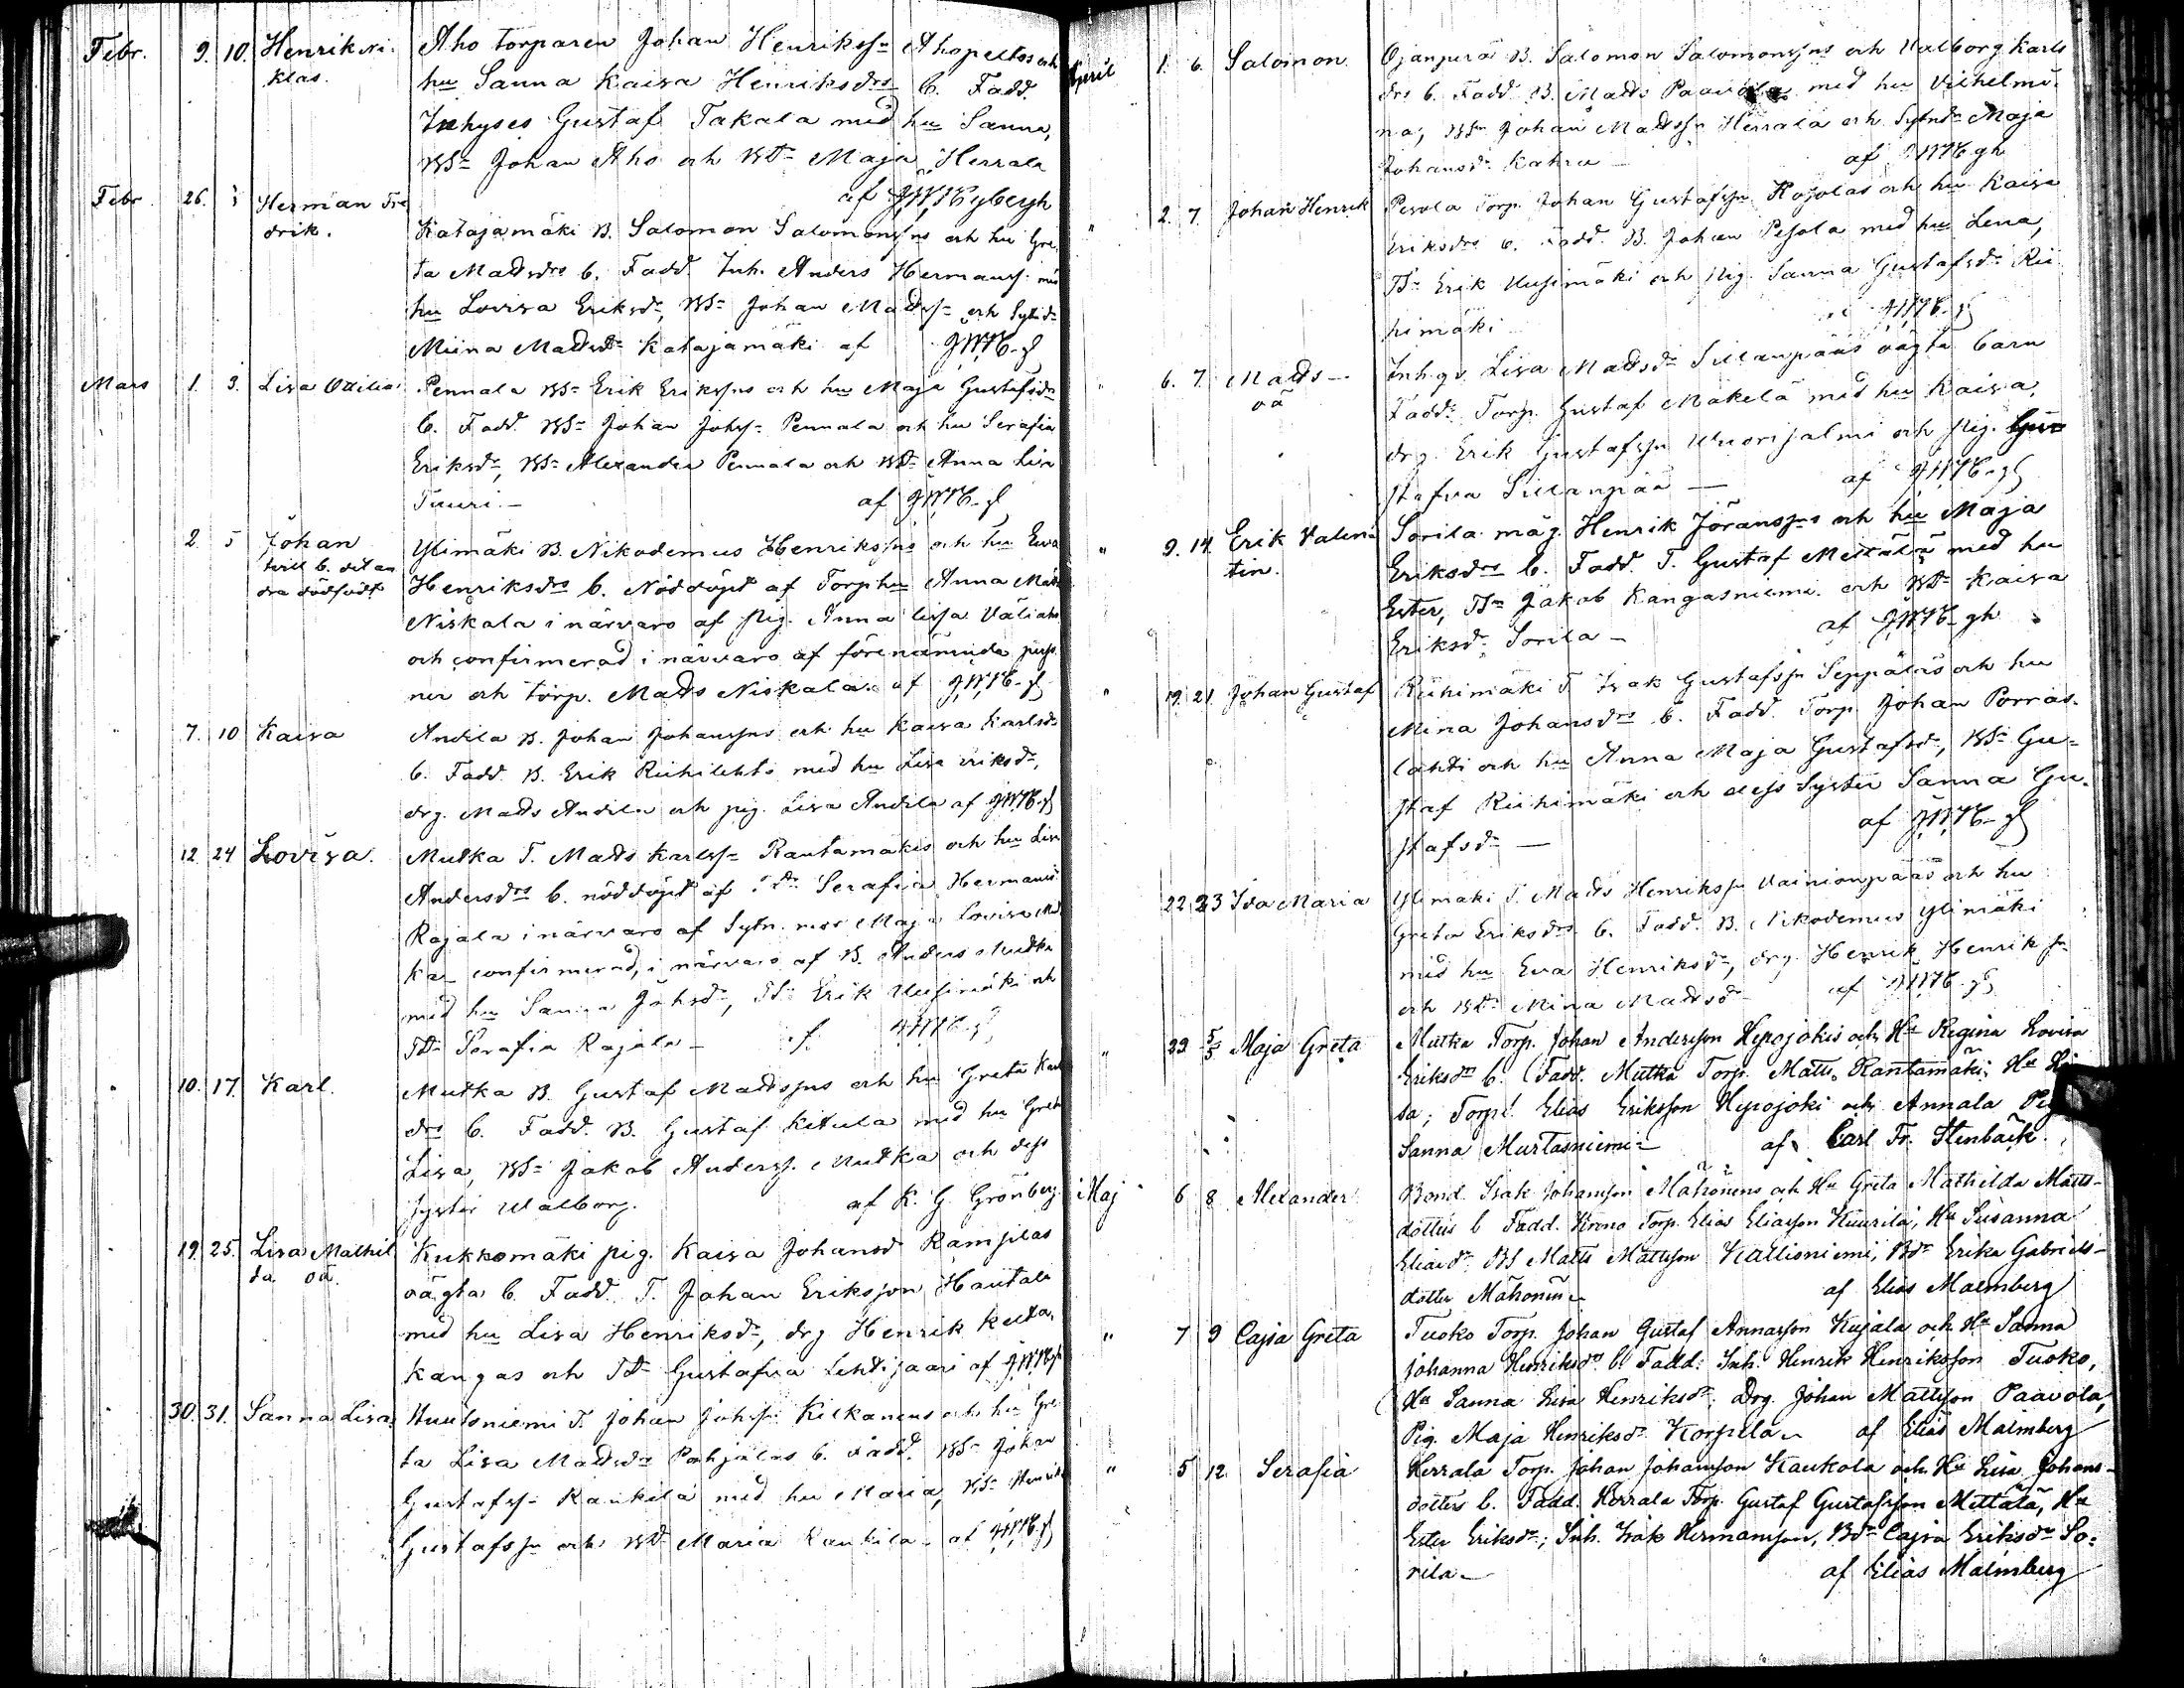 Febr. 9. 10. Henrik Ni- Aho torparen Johan Henrikss. Ahopeltos och
klas. hu Sanna Kaisa Henriksdrs b. Fadd.
Inhyses Gustaf Takala med hu Sanna,
Bsn Johan Aho och Bdr Maja Herrala
af
Febr. 26. Herman Fre
drik. Katajamäki B. Salomon Salomonssns och hu Gre
ta Madsdrs b. Fadd. Inh. Anders Hermanss. med
hu Lovisa Eriksdr, Bsn Johan Madss. och Sytnd.
Miina Madsdr Katajamäki af
Mars 1. 3. Lisa Ottilia Pennala Bsn Erik Erikssns och hu Maja Gustafsdrs
b. Fadd. Bsn Johan Johss. Pennala och hu Serafia
Eriksdr, Bsn Alexander Pennala och Bdr Anna Lisa
Tuuri. - af
2 5 Johan Ylimäki B. Nikodemus Henrikssns och hu Eva
tvill b. det an Henriksdrs b. Nöddöpt af Torp hu Anna
dra dödfödt Niskala i närvaro af Pig. Anna Lisa Väliaho
och confirmerad i närvaro af förenämnda perso
ner och torp. Mads Niskala. af
7. 10 Kaisa Andila B. Johan Johanssns och hu Kaisa Karlsdr
b. Fadd. B. Erik Riihilehto med hu Lisa Eriksdr,
drg. Mads Andila och pig. Lisa Andila af
12. 24 Lovisa. Mutka T. Mads Karlss. Rautamäkis och hu Lisa
Andersdrs b. nöddöpt af Tdr Serafia Hermans
Rajala i närvaro af Sytn. mor Maja Lovisa
ka confirmerad, i närvaro af B. Anders Mutka
med hu Sanna Johsdr, Ts. Erik Uusimäki och
Tdr Serafia Rajala - af
10. 17. Karl. Mutka B. Gustaf Madssns och hu Greta Karls
drs b. Fadd. B. Gustaf Kitula med hu Greta
Lisa, Bsn Jakob Anderss. Mutka och dess
syster Walborg. af K. G. Grönberg.
19. 25. Lisa Mathil Kukkomäki pig. Kaisa Johansd. Ramsilas
da oä. oägta b. Fadd. T. Johan Eriksson Hautala
med hu Lisa Henriksdr, drg Henrik Keuta,
kangas och Tdr Gustafva Lehtisaari af
30. 31. Sanna Lisa. Johan Johss. Kilkanens och hu Gre
ta Lisa Madsdrs Pohjalas b. Fadd. Bsn Johan
Gustafss. Rankila med hu Maria, Bsn Henrik
Gustafssn och Bdr Maria Rankila - af
April 1. 6. Salomon. Ojanperä B. Salomon Salomonssns och Valborg Karls
drs b. Fadd. B. Mads Paavola med hu Vilhelmi-
na, Bsn Johan Madssn Herrala och Sytnd. Maja
Johansd. Kahra - af
" 2. 7. Johan Henrik Pesola Torp. Johan Gustafssn Rojolas och hu Kaisa
Eriksdrs b. Fadd. B. Johan Pesola med hu Lena,
Ts. Erik Uusimäki och Pig. Sanna Gustafsdr Rii
himäki
" 6. 7. Mads - Inhys Lisa Madsdr Sillanpääs oägta barn
oä Fadd. Torp. Gustaf Mäkelä med hu Kaisa,
drg. Erik Gustafssn Wuorisalmi och Pig. Gu
stafva Sillanpää - af
" 9. 14. Erik Valen Sorila måg Henrik Jöranssns och hu Maja
tin. Eriksdrs b. Fadd. T. Gustaf Mettälä med hu
Ester, Tsn Jakob Kangasniemi och Bdr Kaisa
Eriksd. Sorila - af
" 19. 21 Johan Gustaf Riihimäki T. Isak Gustafssn Seppäläs och hu
Mina Johansdrs b. Fadd. Torp. Johan Porras-
lahti och hu Anna Maja Gustafsdr, Bsn Gu-
staf Riihimäki och dess syster Sanna Gu-
stafsdr - af
22. 23 Ida Maria Ylimäki T. Mads Henrikssn Vainionpääs och hu
Greta Eriksdrs b. Fadd. B. Nikodemus Ylimäki
med hu Eva Henriksdr, drg. Henrik Henrikssn
och Bdr Mina Madsdr af
" 29 5/5 Maja Greta Mutka Torp. Johan Andersson Hypojokis och Hu Regina Lovisa
Eriksdrs b. Fadd. Mutka Torp. Matts Rantamäki, Hu
sa; Torps. Elias Eriksson Hypojoki och Annala
Sanna Murtasniemi - af Carl Fr. Stenbäck.
Maj 6 8 Alexander Bond. Isak Johansson Mahonens och Hu Greta Mathilda Matts-
dotters b. Fadd. Torp. Elias Eliasson Kuurila, Hu Susanna
Eliasdr, BS Matts Mattsson Kallioniemi, Bdr Erika Gabriels-
dotter Mahonen - af Elias Malmberg
" 7 9 Cajsa Greta Tuoko Torp. Johan Gustaf Annasson Kujala och Hu Sanna
Johanna Henriksdrs b. Fadd: Inh. Henrik Henriksson Tuoko,
Hu Sanna Lisa Henriksdr; Drg. Johan Mattsson Paavola,
Pig. Maja Henriksdr Korpela - af Elias Malmberg
" 5 12. Serafia Herrala Torp. Johan Johansson Kaukola och Hu Lisa Johans-
dotters b. Fadd. Herrala Torp. Gustaf Gustafsson Mettälä, Hu
Ester Eriksdr; Inh. Isak Hermansson, Bdr Cajsa Eriksdr So-
rila - af Elias Malmberg